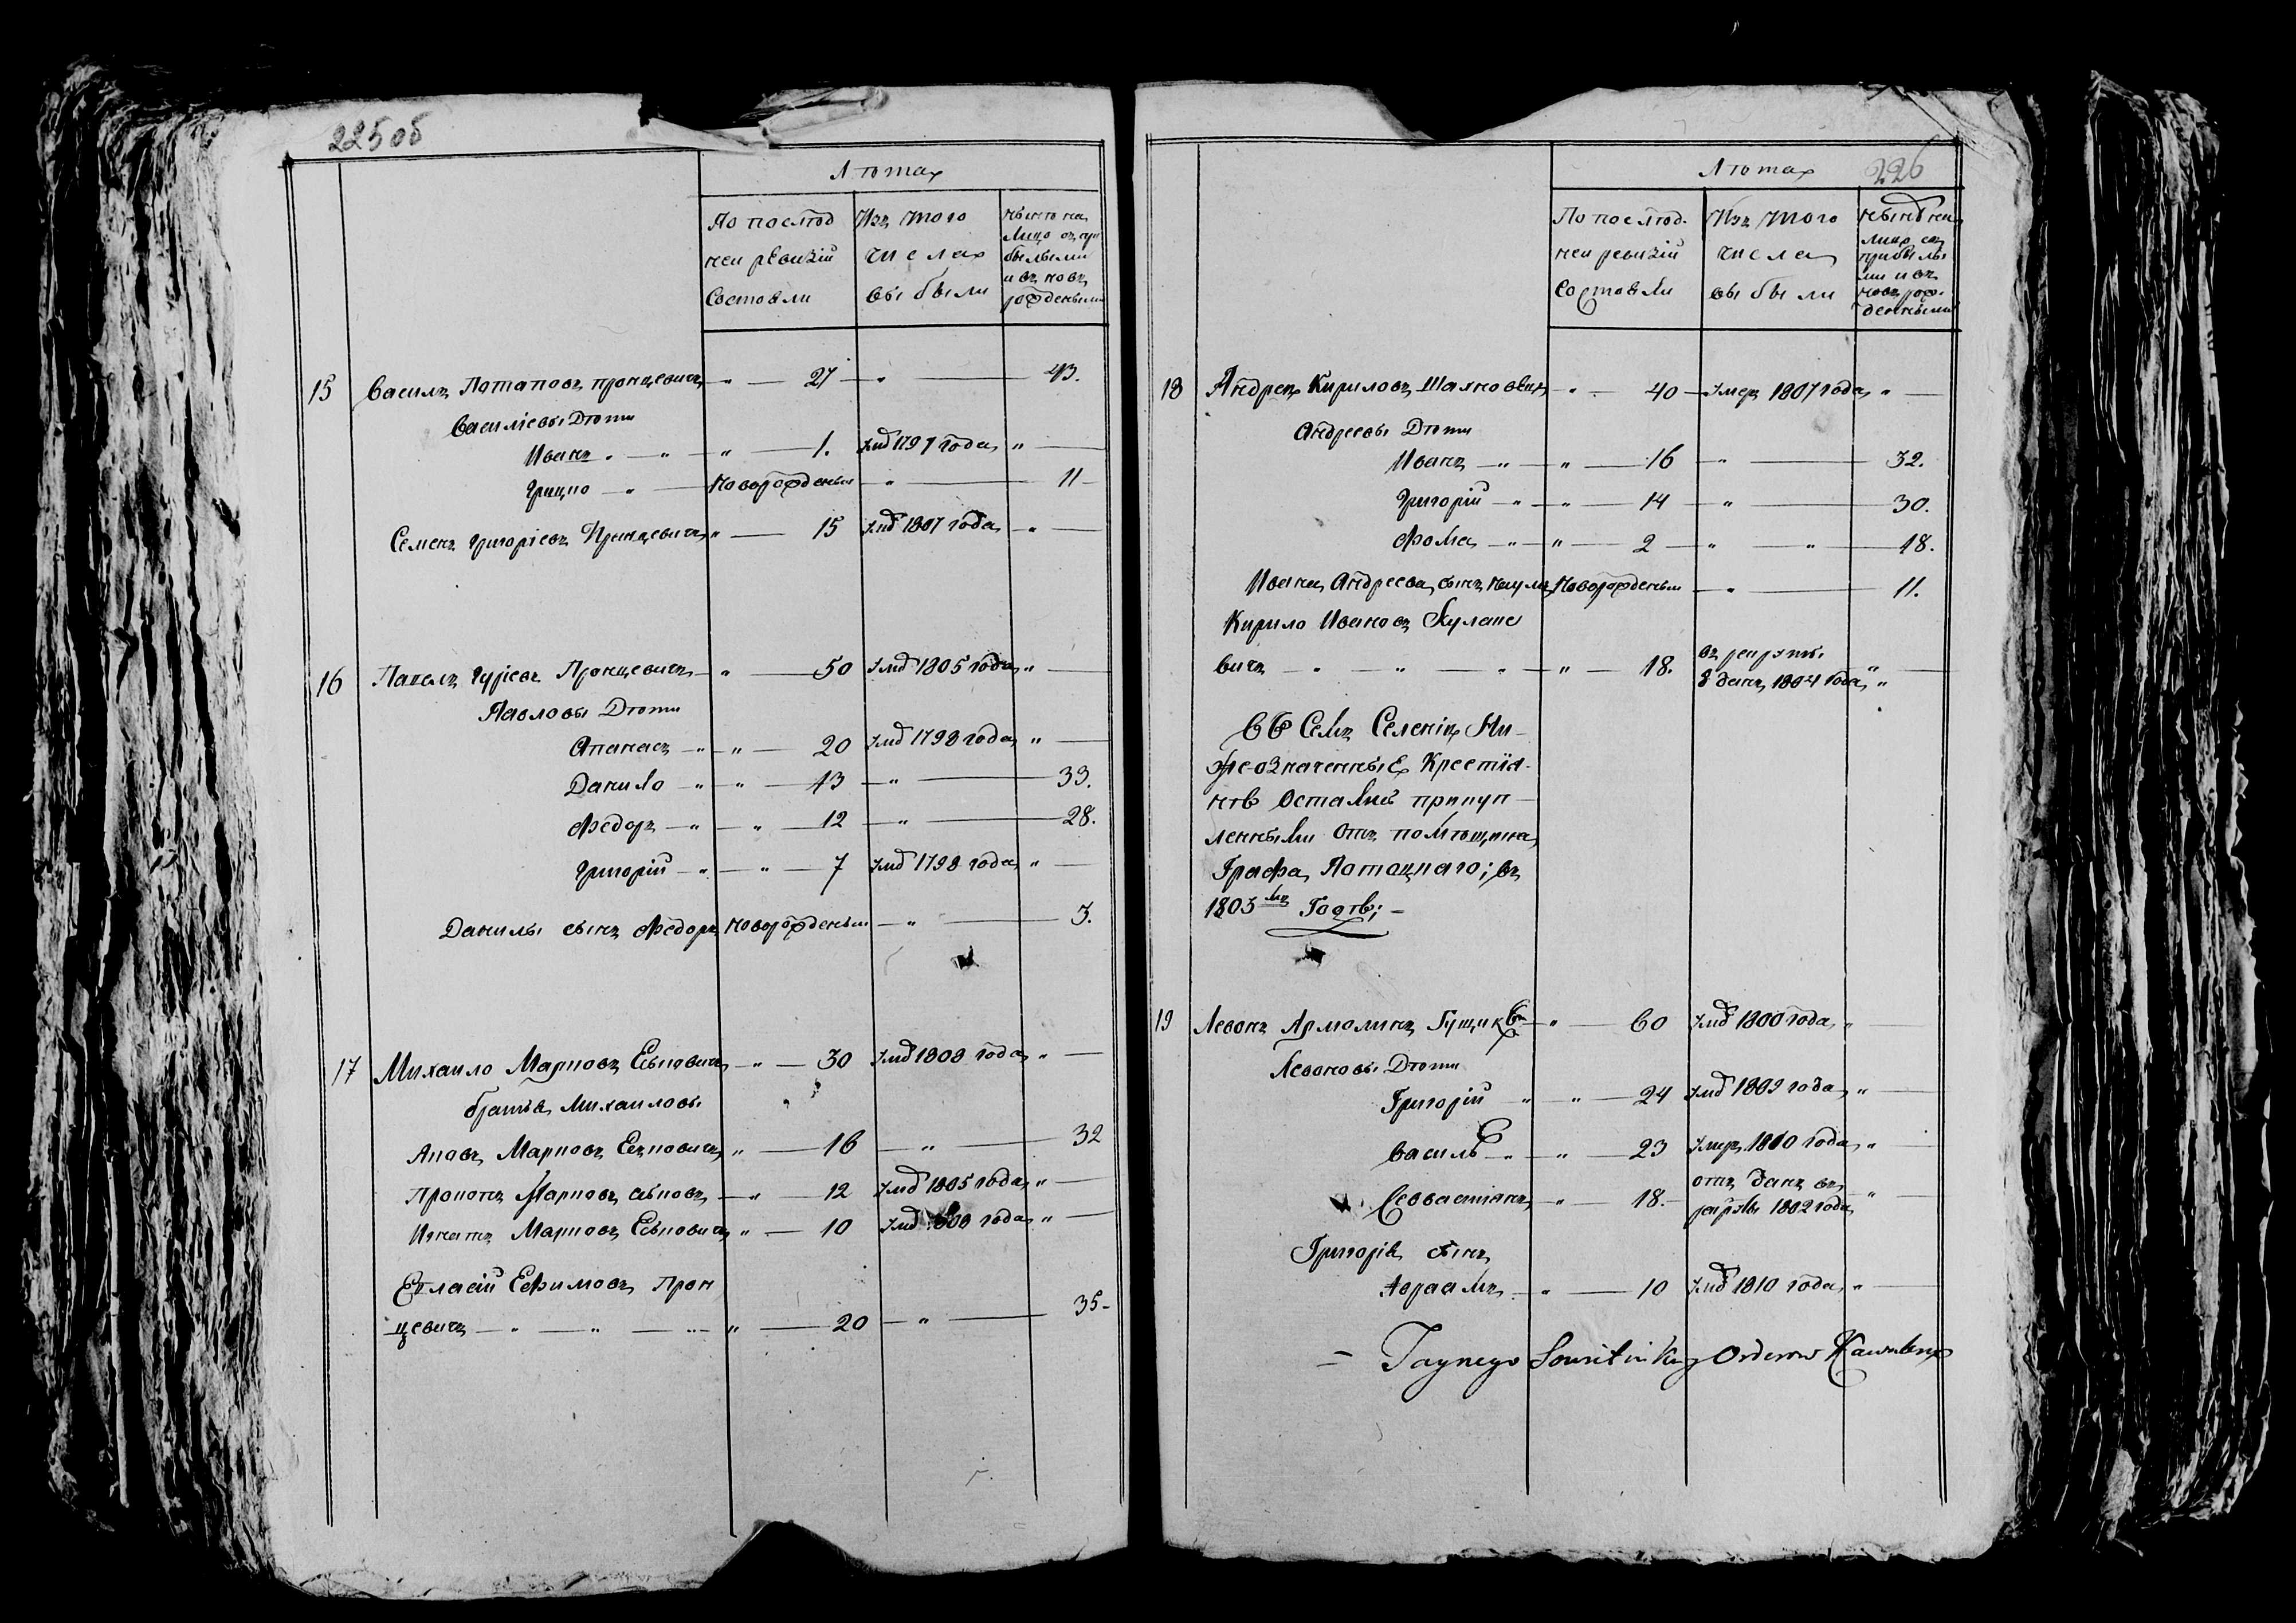 225об
Лѣтах
По послѣд
ней ревизіи
состояли
Изъ того
числа
выбыли
нынѣ на
лицо
былыми
и въ новъ
рожденными
15 Василь Потаповъ Пронцевичъ " 27 " 43.
Василіевы Дѣти
Иванъ " " 1. умд 1797 года "
Грицко " новорожденны " 11
Семенъ Григоріевъ Пронцевичъ " 15 умд 1807 года "
16 Павелъ Гуріевъ Пронцевичъ " 50 умд 1805 года "
Павловы Дѣти
Апанасъ " " 20 умд 1798 года "
Данило " " 13 " 33.
Федоръ " " 12 " 28.
Григорій " " 7 умд 1798 года "
Данилы сынъ Федоръ новорожденны " 3.
17 Михаило Марковъ " 30 умд 1808 года "
братья Михаиловы
Марковъ " 16 " 32
Прокопъ Марковъ " 12 умд 1805 года "
Игнатъ Марковъ " 10 умд 1808 года "
Ефимовъ Прон
цевичъ " " " " 20 " 35
226
Лѣтах
По послѣд.
ней ревизіи
состояли
Изъ того
числа
выбыли
нынѣ на
лицо съ
прибылы
ми и въ
новъ рож
денными
18 Андрей Кириловъ " 40 умер 1807 года "
Андреевы Дѣти
Иванъ " " 16 " 32.
Григорій " " 14 " 30.
Фома " " 2 " " 18.
Ивана Андреева сынъ новорожденны " 11.
Кирило Ивановъ
вичъ " " " " 18. въ рекруты
данъ 1804 года "
Въ Семъ Селеніи Ни
жеозначенные Крестья
не остались прикуп
ленными отъ помѣщика
Графа Потоцкаго; въ
1803мъ Годѣ;
19 Левонъ " 60 умд 1800 года "
Левоновы Дѣти
Григорій " " 24 умд 1809 года "
Василь " " 23 умер 1810 года "
Севастіанъ " 18. отъ данъ въ
рекруты 1802 года "
Григорія сынъ
Авраамъ " 10 умд 1810 года "
Orderow Kawaler